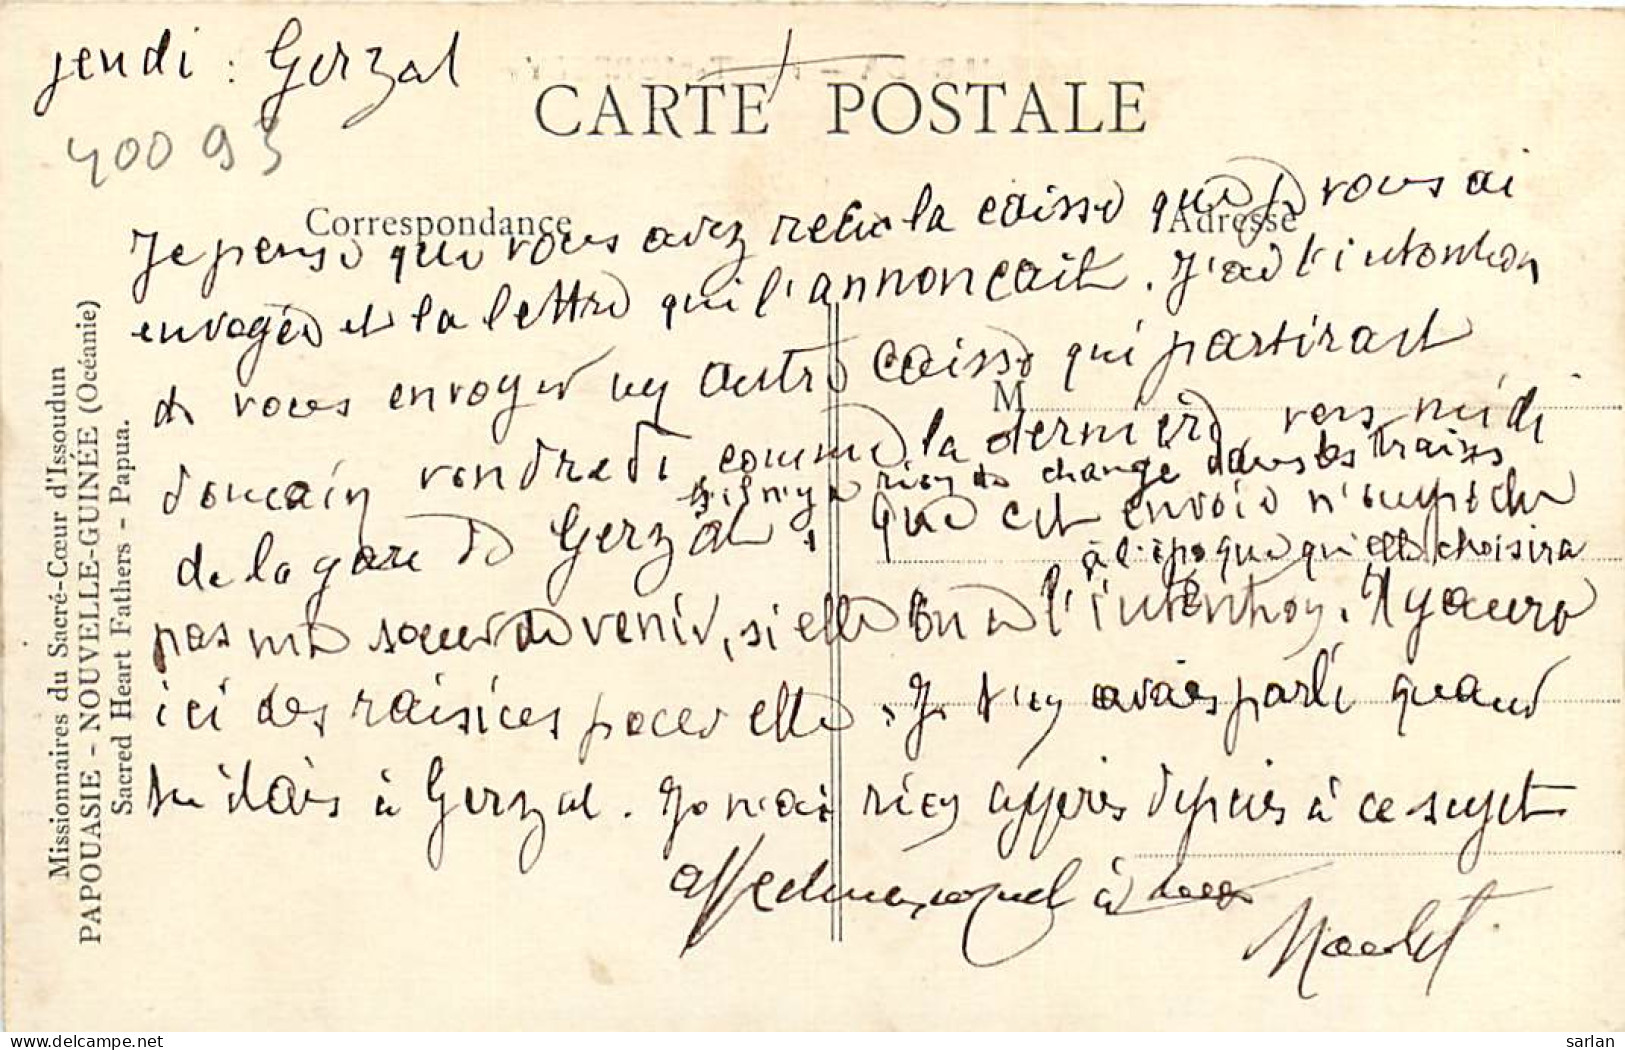 jeudi : Gerzat
400 93
CARTE POSTALE
Correspondance
Adresse
M
Je pense que vous avez recu la caisse que je vous ai
envoyée et la lettre qui l'annonçait. J'ai l'intention
de vous envoyer un autre caisse qui partirait
demain vendredi comme la dernière vers midi
s'il n'y a rien de changé dans les trains
de la gare de Gerzat. Que cet envoie n'empeche
à l'époque qu'elle choisira
pas ma soeur de venir, si elle en a l'intention. Il y aura
ici des raisins pour elle. Je t'en avais parlé quand
tu étais à Gerzat. Je n'ai rien appris depuis à ce sujet
affectueusement à tous
Missionnaires du Sacré-Cœur d'Issoudun
PAPOUASIE - NOUVELLE-GUINÉE (Océanie)
Sacred Heart Fathers - Papua.
delcampe.net
sarlan